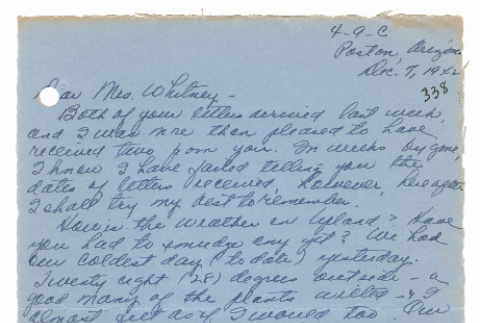 4-9-C
Poston, Arizona
Dec. 7, 1942
338
Dear Mrs. Whitney -
Both of your letters arrived last week,
and I was more then pleased to have
received two from you. In weeks by gone,
I know I have failed telling you the
dates of letters received, however, hereafter
I shall try my best to remember.
How is the weather in Upland? Have
you had to smudge any yet? We had
our coldest day (to date) yesterday.
Twenty eight (28) degrees outside - a
good many of the plants wilted - & I
almost felt as if I would too. Our